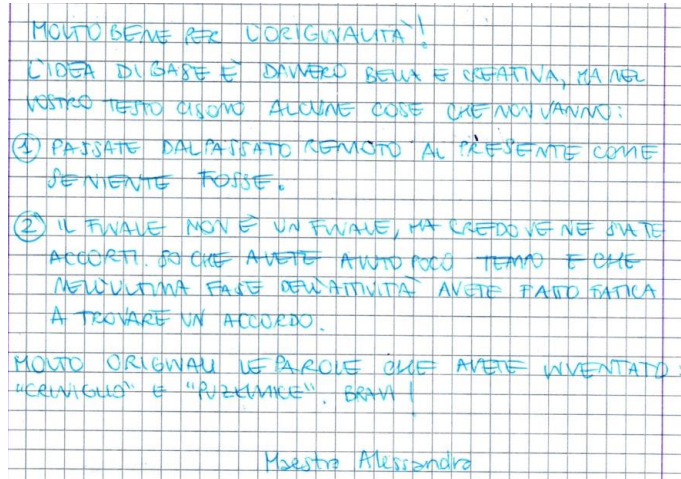 MOLTO BENE PER L'ORIGINALITÀ!
L'IDEA DI BASE È DAVVERO BELLA E CREATIVA, MA NEL
VOSTRO TESTO CI SONO ALCUNE COSE CHE NON VANNO:
① PASSATE DAL PASSATO REMOTO AL PRESENTE COME
SE NIENTE FOSSE.
② IL FINALE NON È UN FINALE, MA CREDO VE NE SIATE
ACCORTI. SO CHE AVETE AVUTO POCO TEMPO E CHE
NELL'ULTIMA FASE DELL'ATTIVITÀ AVETE FATTO FATICA
A TROVARE UN ACCORDO.
MOLTO ORIGINALI LE PAROLE CHE AVETE INVENTATO:
E BRAVI!
Maestro Alessandro